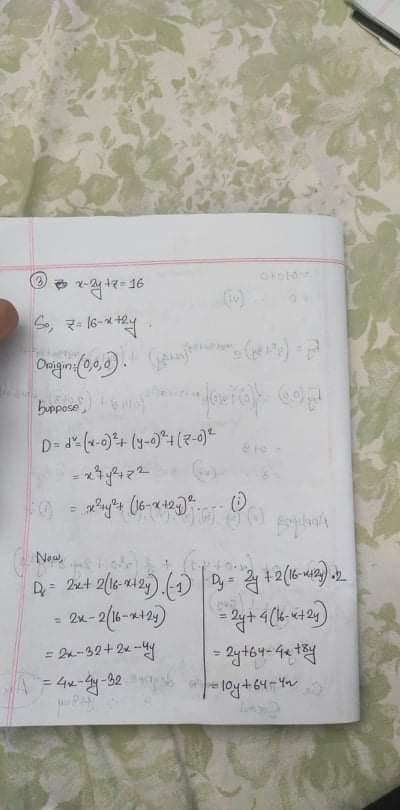 ③ x-2y+z=16
So, z=16-x+2y.
Origin:(0,0,0).
Suppose,
D=d²=(x-0)²+(y-0)²+(z-0)²
=x²+y²+z²
=x²+y²+(16-x+2y)² ... (i)
Now,
Dx = 2x+2(16-x+2y).(-1)
= 2x-2(16-x+2y)
=2x-32+2x-4y
=4x-4y-32
Dy = 2y+2(16-x+2y)·2
=2y+4(16-x+2y)
=2y+64-4x+8y
=10y+64-4x